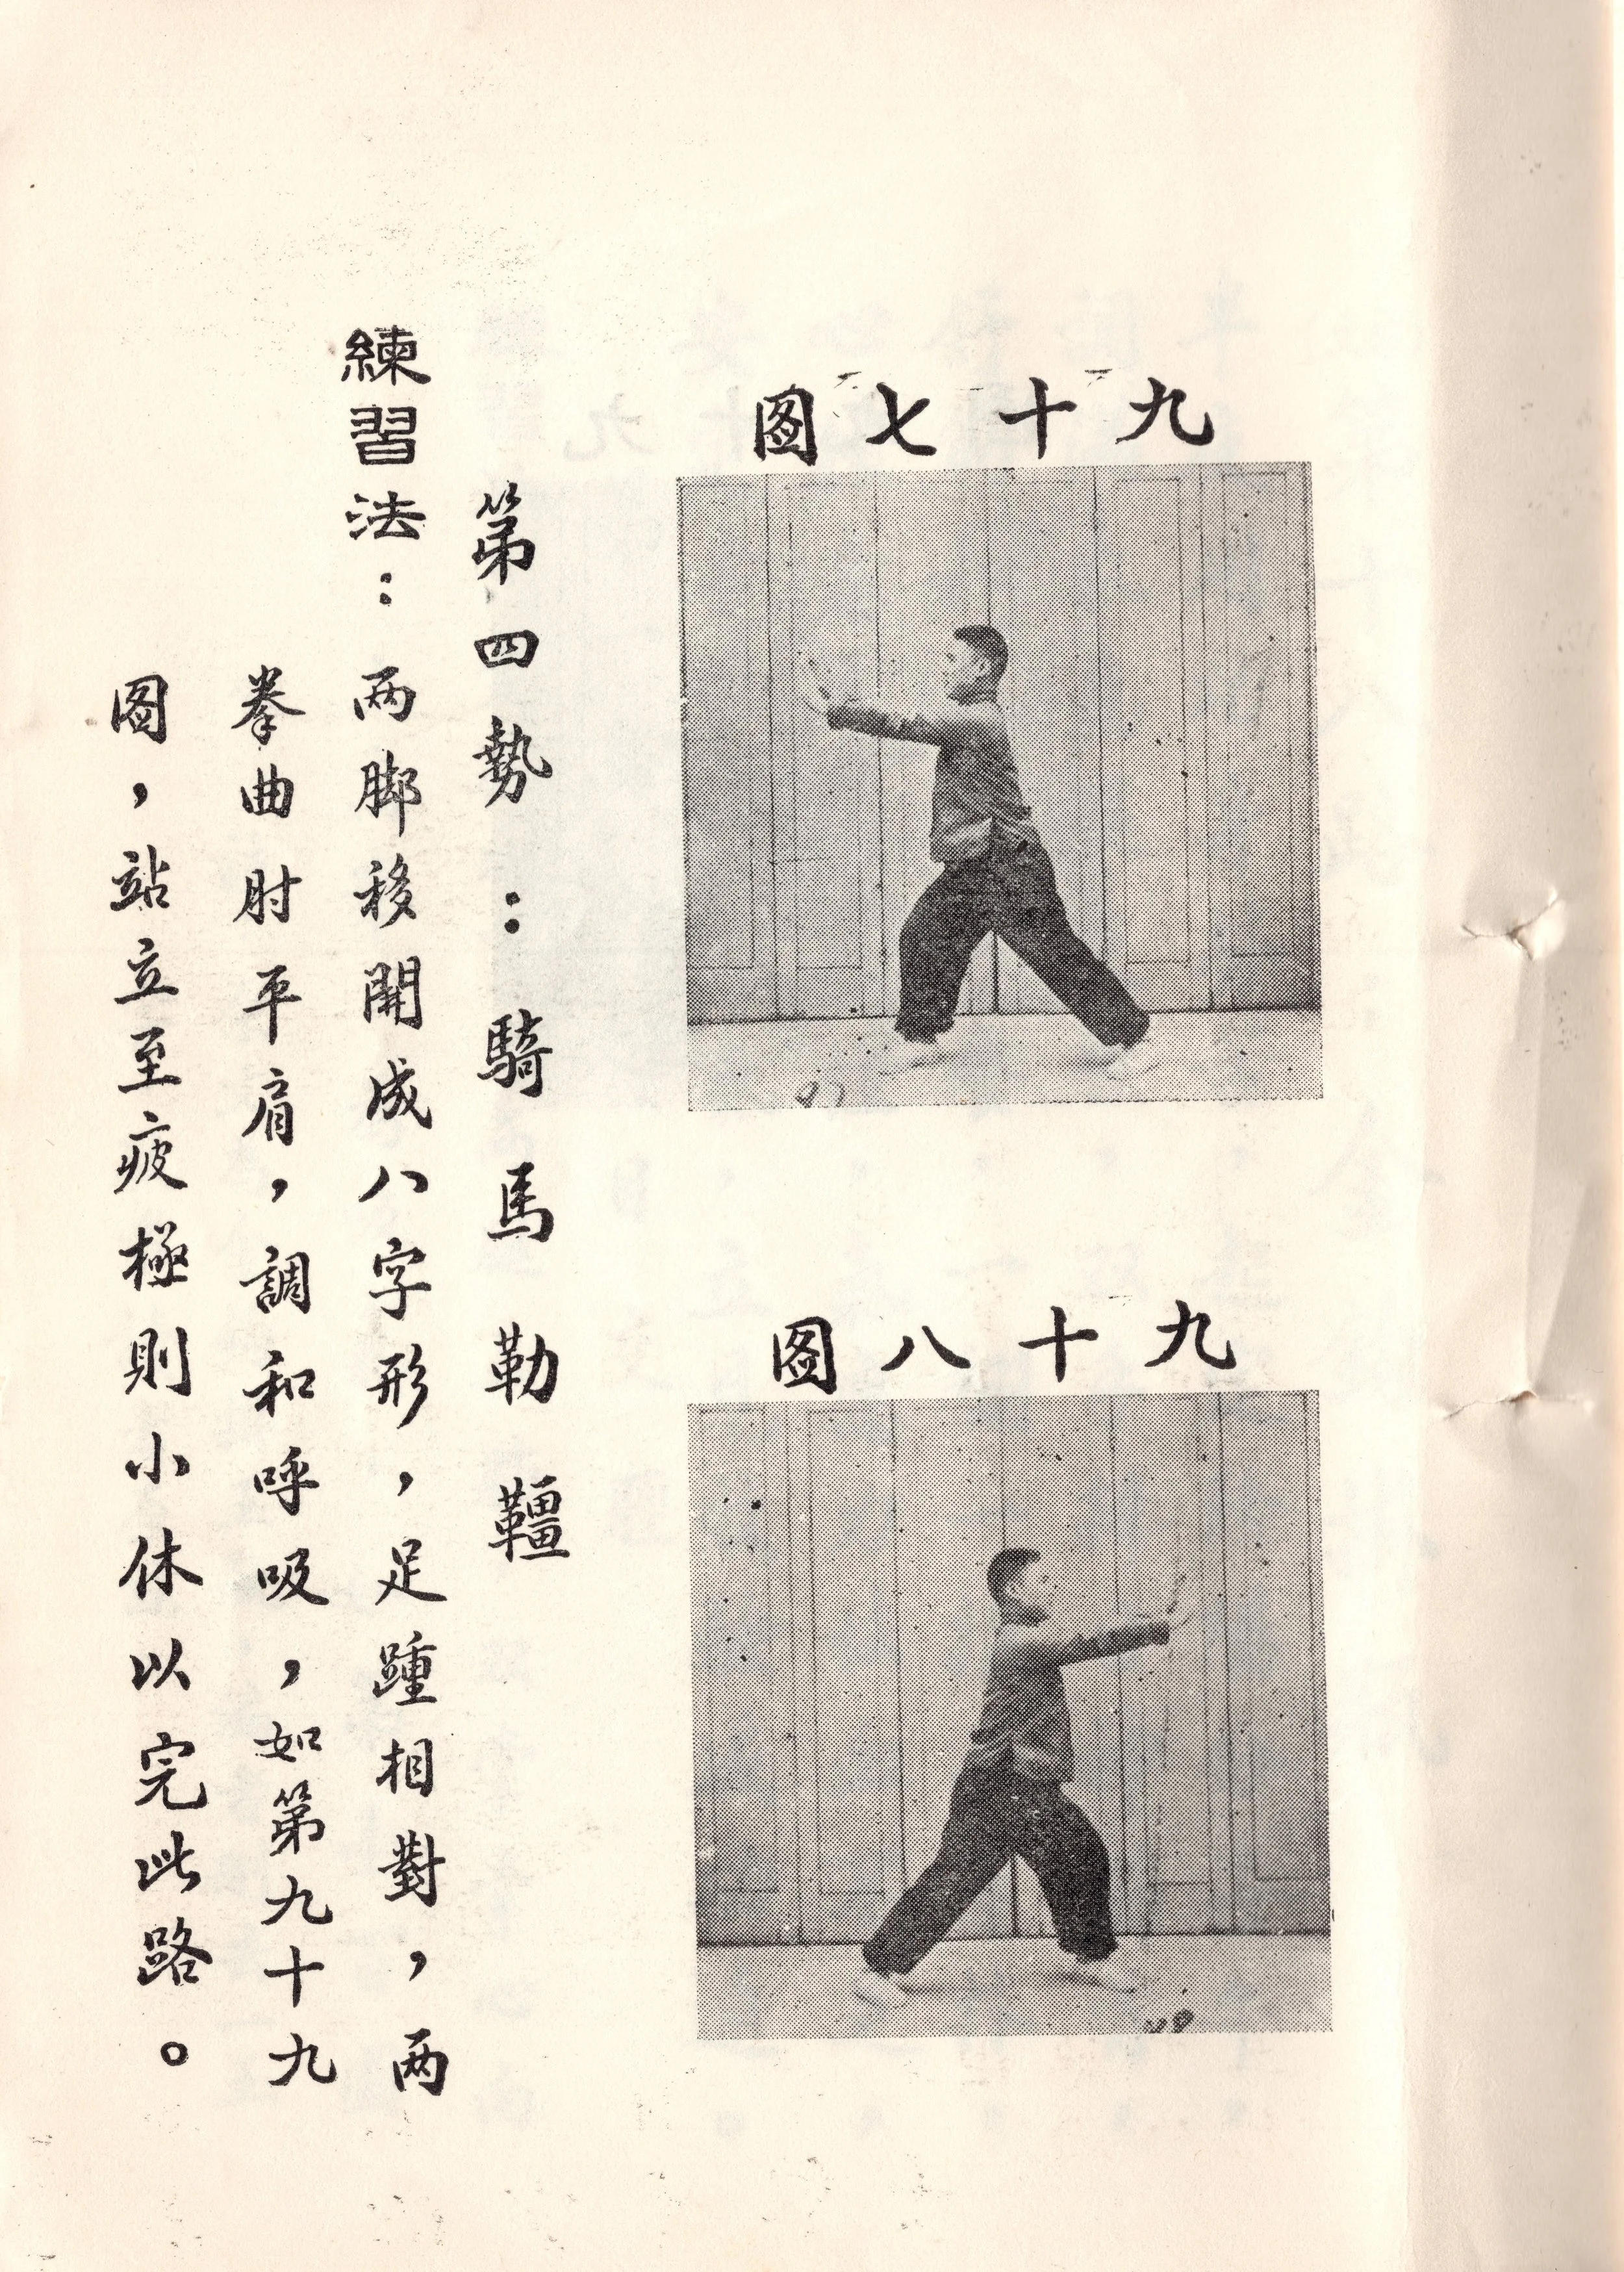 九十七図
97
九十八図
98
第四勢：騎馬勒韁
練習法：两脚移開成八字形，足踵相對，两
拳曲肘平肩，調和呼吸，如第九十九
図，站立至疲極則小休以完此路。